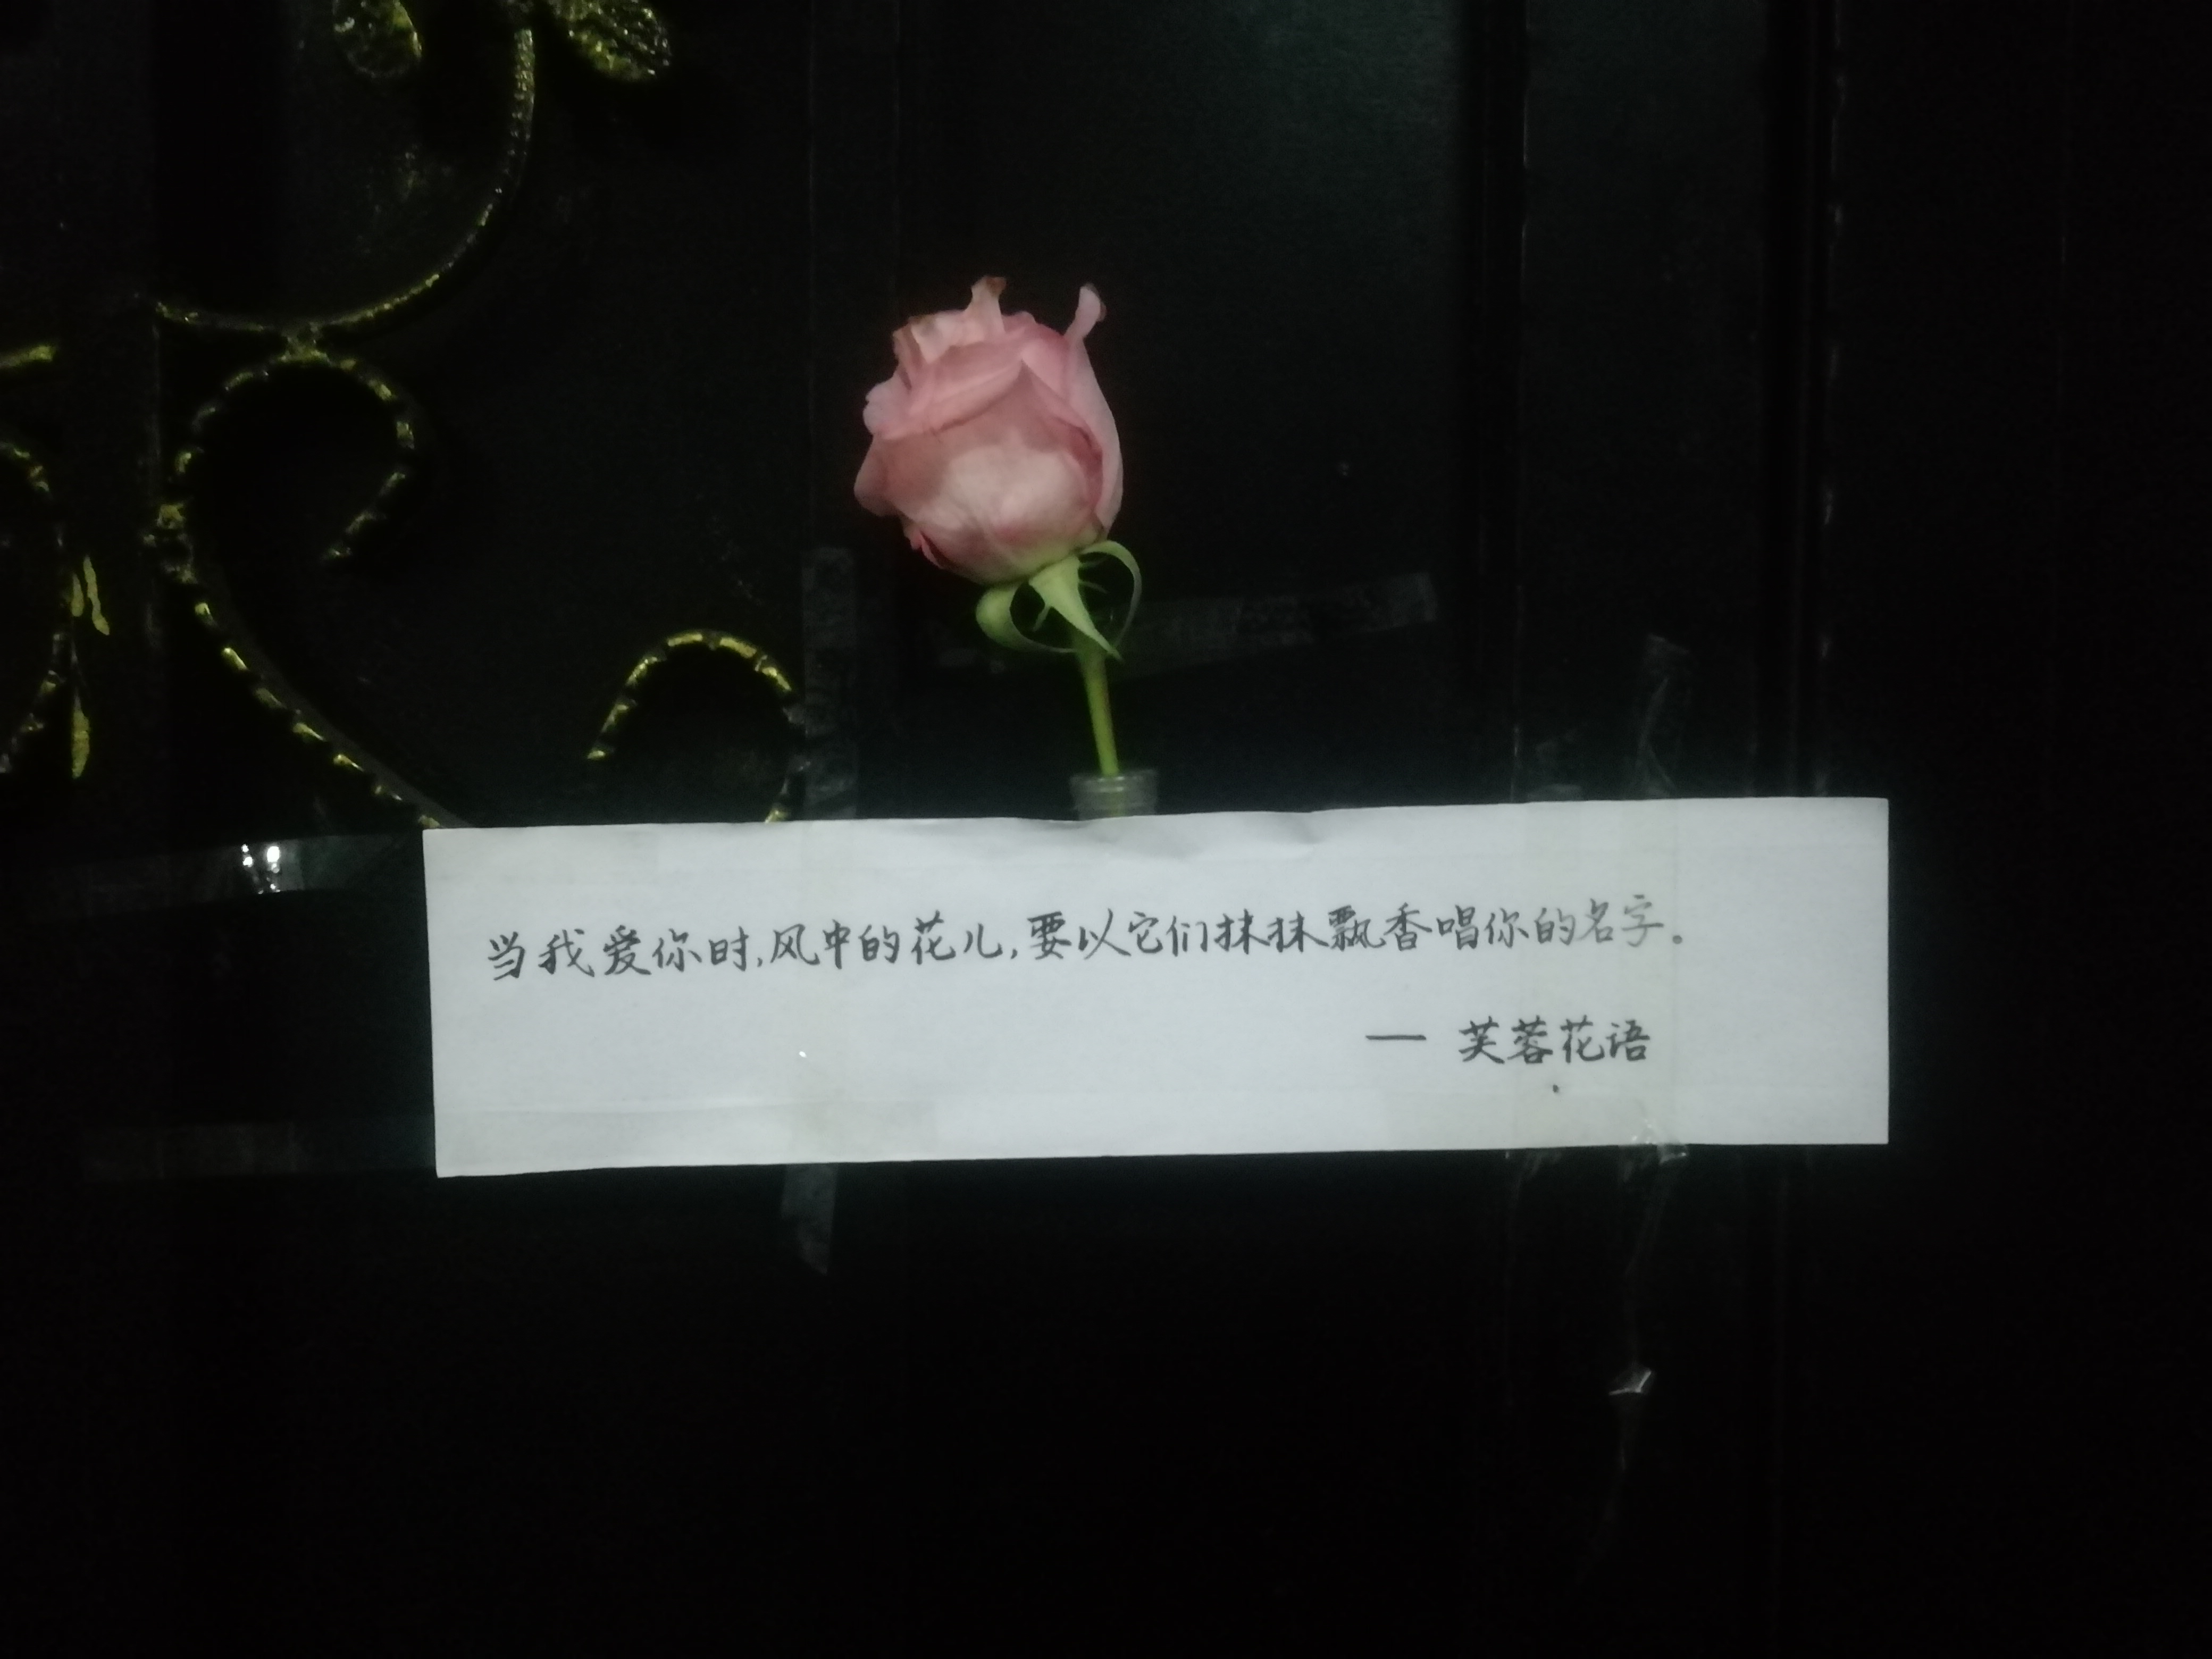 当我爱你时,风中的花儿,要以它们抹抹飘香唱你的名字。
— 芙蓉花语